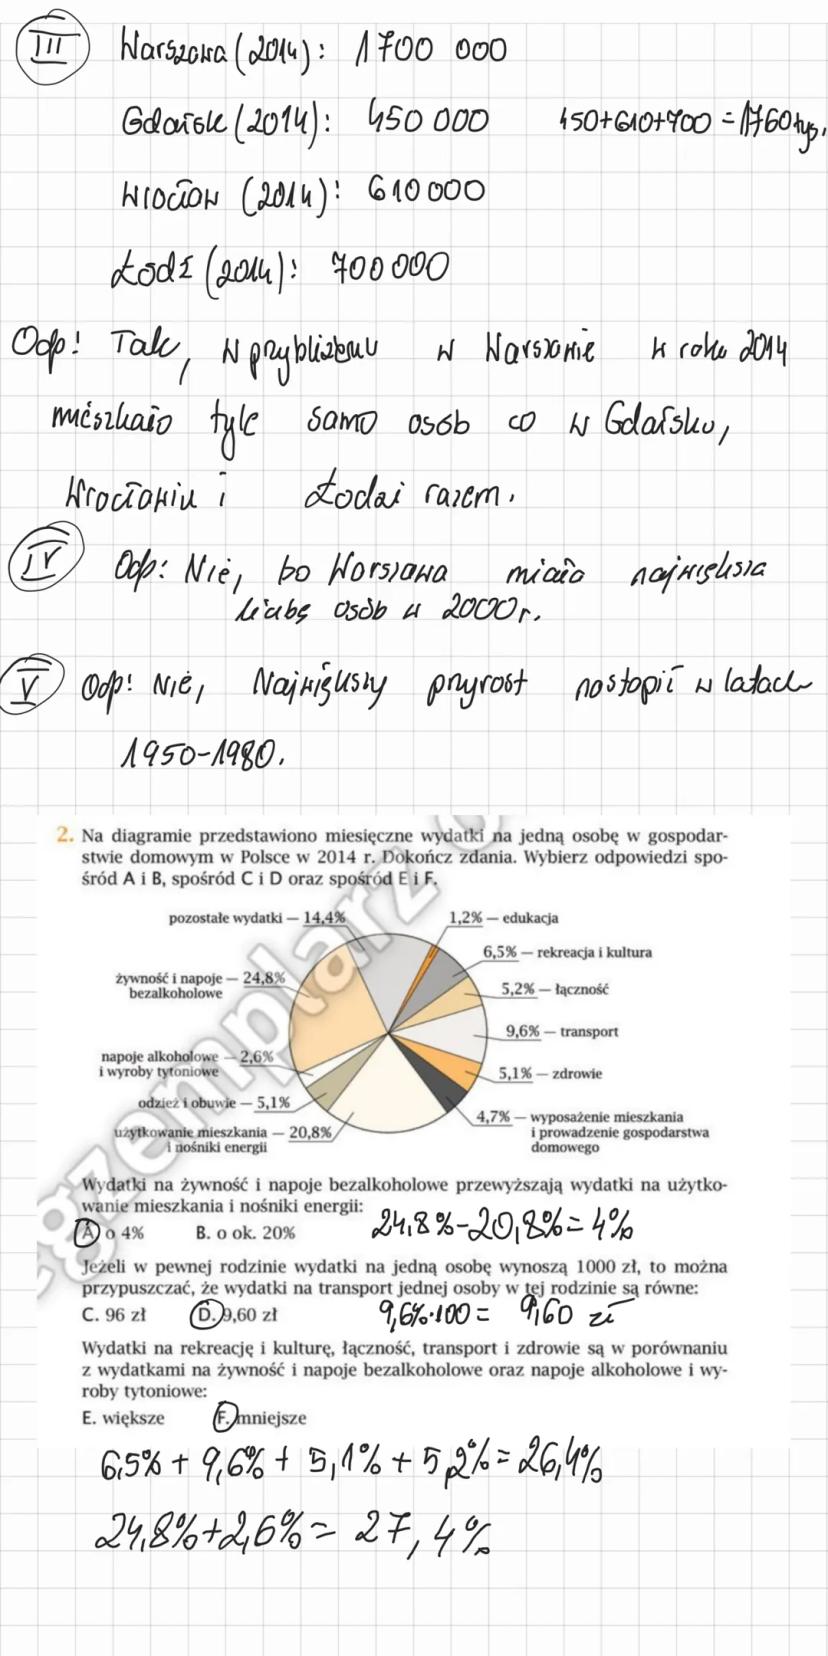 III Warszawa (2014): 1700 000
Gdańsk (2014): 450 000 450+610+700 = 1760 tys.
Wrocław (2014): 610 000
Łódź (2014): 700 000
Odp: Tak, w przybliżeniu w Warszawie w roku 2014
mieszkało tyle samo osób co w Gdańsku,
Wrocławiu i Łodzi razem.
IV Odp: Nie, bo Warszawa miała największa
liczbę osób w 2000r.
V Odp: Nie, Największy przyrost nastąpił w latach
1950-1980.
egzemplarz o
2. Na diagramie przedstawiono miesięczne wydatki na jedną osobę w gospodar-
stwie domowym w Polsce w 2014 r. Dokończ zdania. Wybierz odpowiedzi spo-
śród A i B, spośród C i D oraz spośród E i F.
pozostałe wydatki – 14,4%
1,2% – edukacja
6,5% – rekreacja i kultura
żywność i napoje – 24,8%
bezalkoholowe
5,2% – łączność
9,6% – transport
napoje alkoholowe – 2,6%
i wyroby tytoniowe
5,1% – zdrowie
odzież i obuwie – 5,1%
4,7% – wyposażenie mieszkania
i prowadzenie gospodarstwa
domowego
użytkowanie mieszkania – 20,8%
i nośniki energii
Wydatki na żywność i napoje bezalkoholowe przewyższają wydatki na użytko-
wanie mieszkania i nośniki energii:
A. o 4% B. o ok. 20% 24,8%-20,8%=4%
Jeżeli w pewnej rodzinie wydatki na jedną osobę wynoszą 1000 zł, to można
przypuszczać, że wydatki na transport jednej osoby w tej rodzinie są równe:
C. 96 zł D. 9,60 zł 9,6%·100= 9,60 zł
Wydatki na rekreację i kulturę, łączność, transport i zdrowie są w porównaniu
z wydatkami na żywność i napoje bezalkoholowe oraz napoje alkoholowe i wy-
roby tytoniowe:
E. większe F. mniejsze
6,5% + 9,6% + 5,1% + 5,2% = 26,4%
24,8%+2,6% = 27,4%